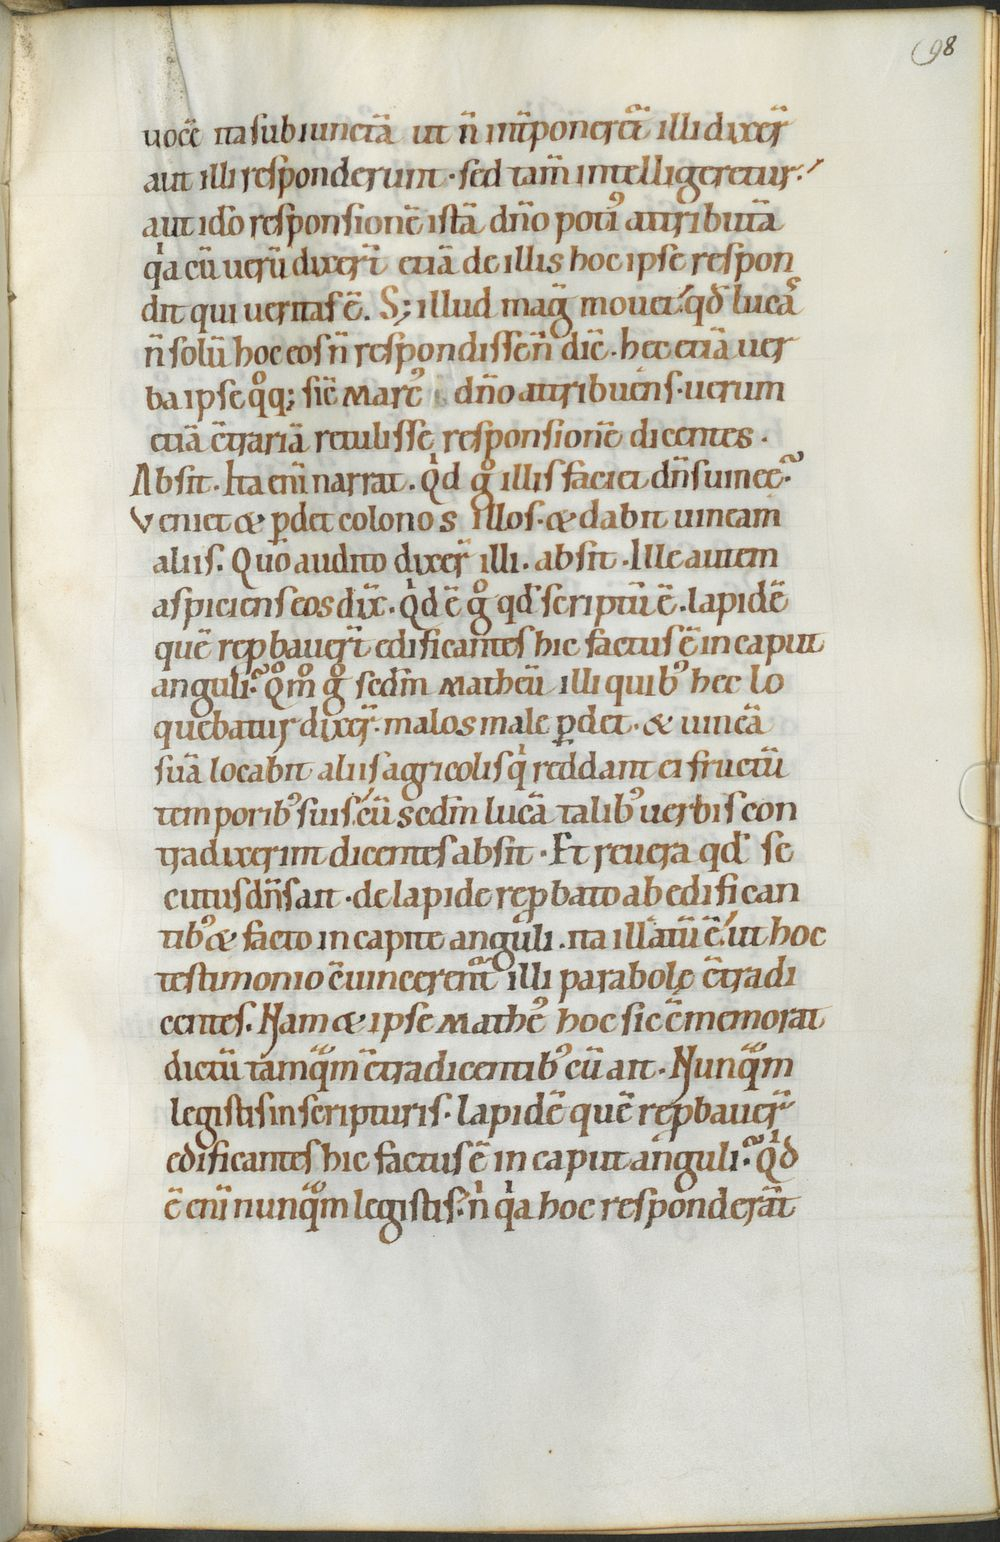 98
uocē ita subiunctā ut n̄ int̄poneret᷑ illi dixer̄
aut illi responderunt · sed tam̄ intelligeretur·
aut ido responsionē istā dn̄o poti᷒ attributā
qͥa cū uerū dixer̄t etiā de illis hoc ipse respon
dit qui ueritas ē. S; illud mag̅ mouet· qd̄ lucā
n̄ solū hoc eos n̄ respondisse n̄ dic̄ · hec etiā uer
ba ipse qͦq; sic̄ marc᷒ dn̄o attribuens · uerum
etiā c̄trariā retulisse responsionē dicentes ·
Absit · Ita eni̅ narrat · Qͥd gͦ illis faciet dn̄s uinee?
Veniet & ꝑdet colonos illos · & dabit uineam
aliis. Quo audito dixer̄ illi · absit · Ille autem
aspiciens eos dix̄ · Qͥd ē gͦ qd̄ scriptū ē · lapidē
quē rep̱bauer̄t edificantes hic factus ē in caput
anguli? Qm̄ gͦ sedm̄ matheū illi quib᷒ hec lo
quebatur dixer̄ · malos male ꝑdet · & uineā
suā locabit aliis agricolis qͥ reddant ei fructū
temporib᷒ suis· cū sedm̄ lucā talib᷒ uerbis con
tradixerint dicentes absit · Et reuera qd̄ se
cutus dn̄s ait · de lapide rep̱bato ab edifican
tib᷒ & facto in capite anguli · ita illatū ē· ut hoc
testimonio c̄uincerent᷑ illi parabolę c̄tradi
centes. Nam & ipse Mathe᷒ hoc sic c̄memorat
dictū tamqᷓm c̄tradicentib᷒ cū ait · Nunqᷓm
legistis in scripturis · lapidē quē rep̱bauer̄
edificantes hic factus ē in caput anguli? Qͥd
ē eni̅ nunqᷓm legistis? n̄ qͥa hoc responderāt